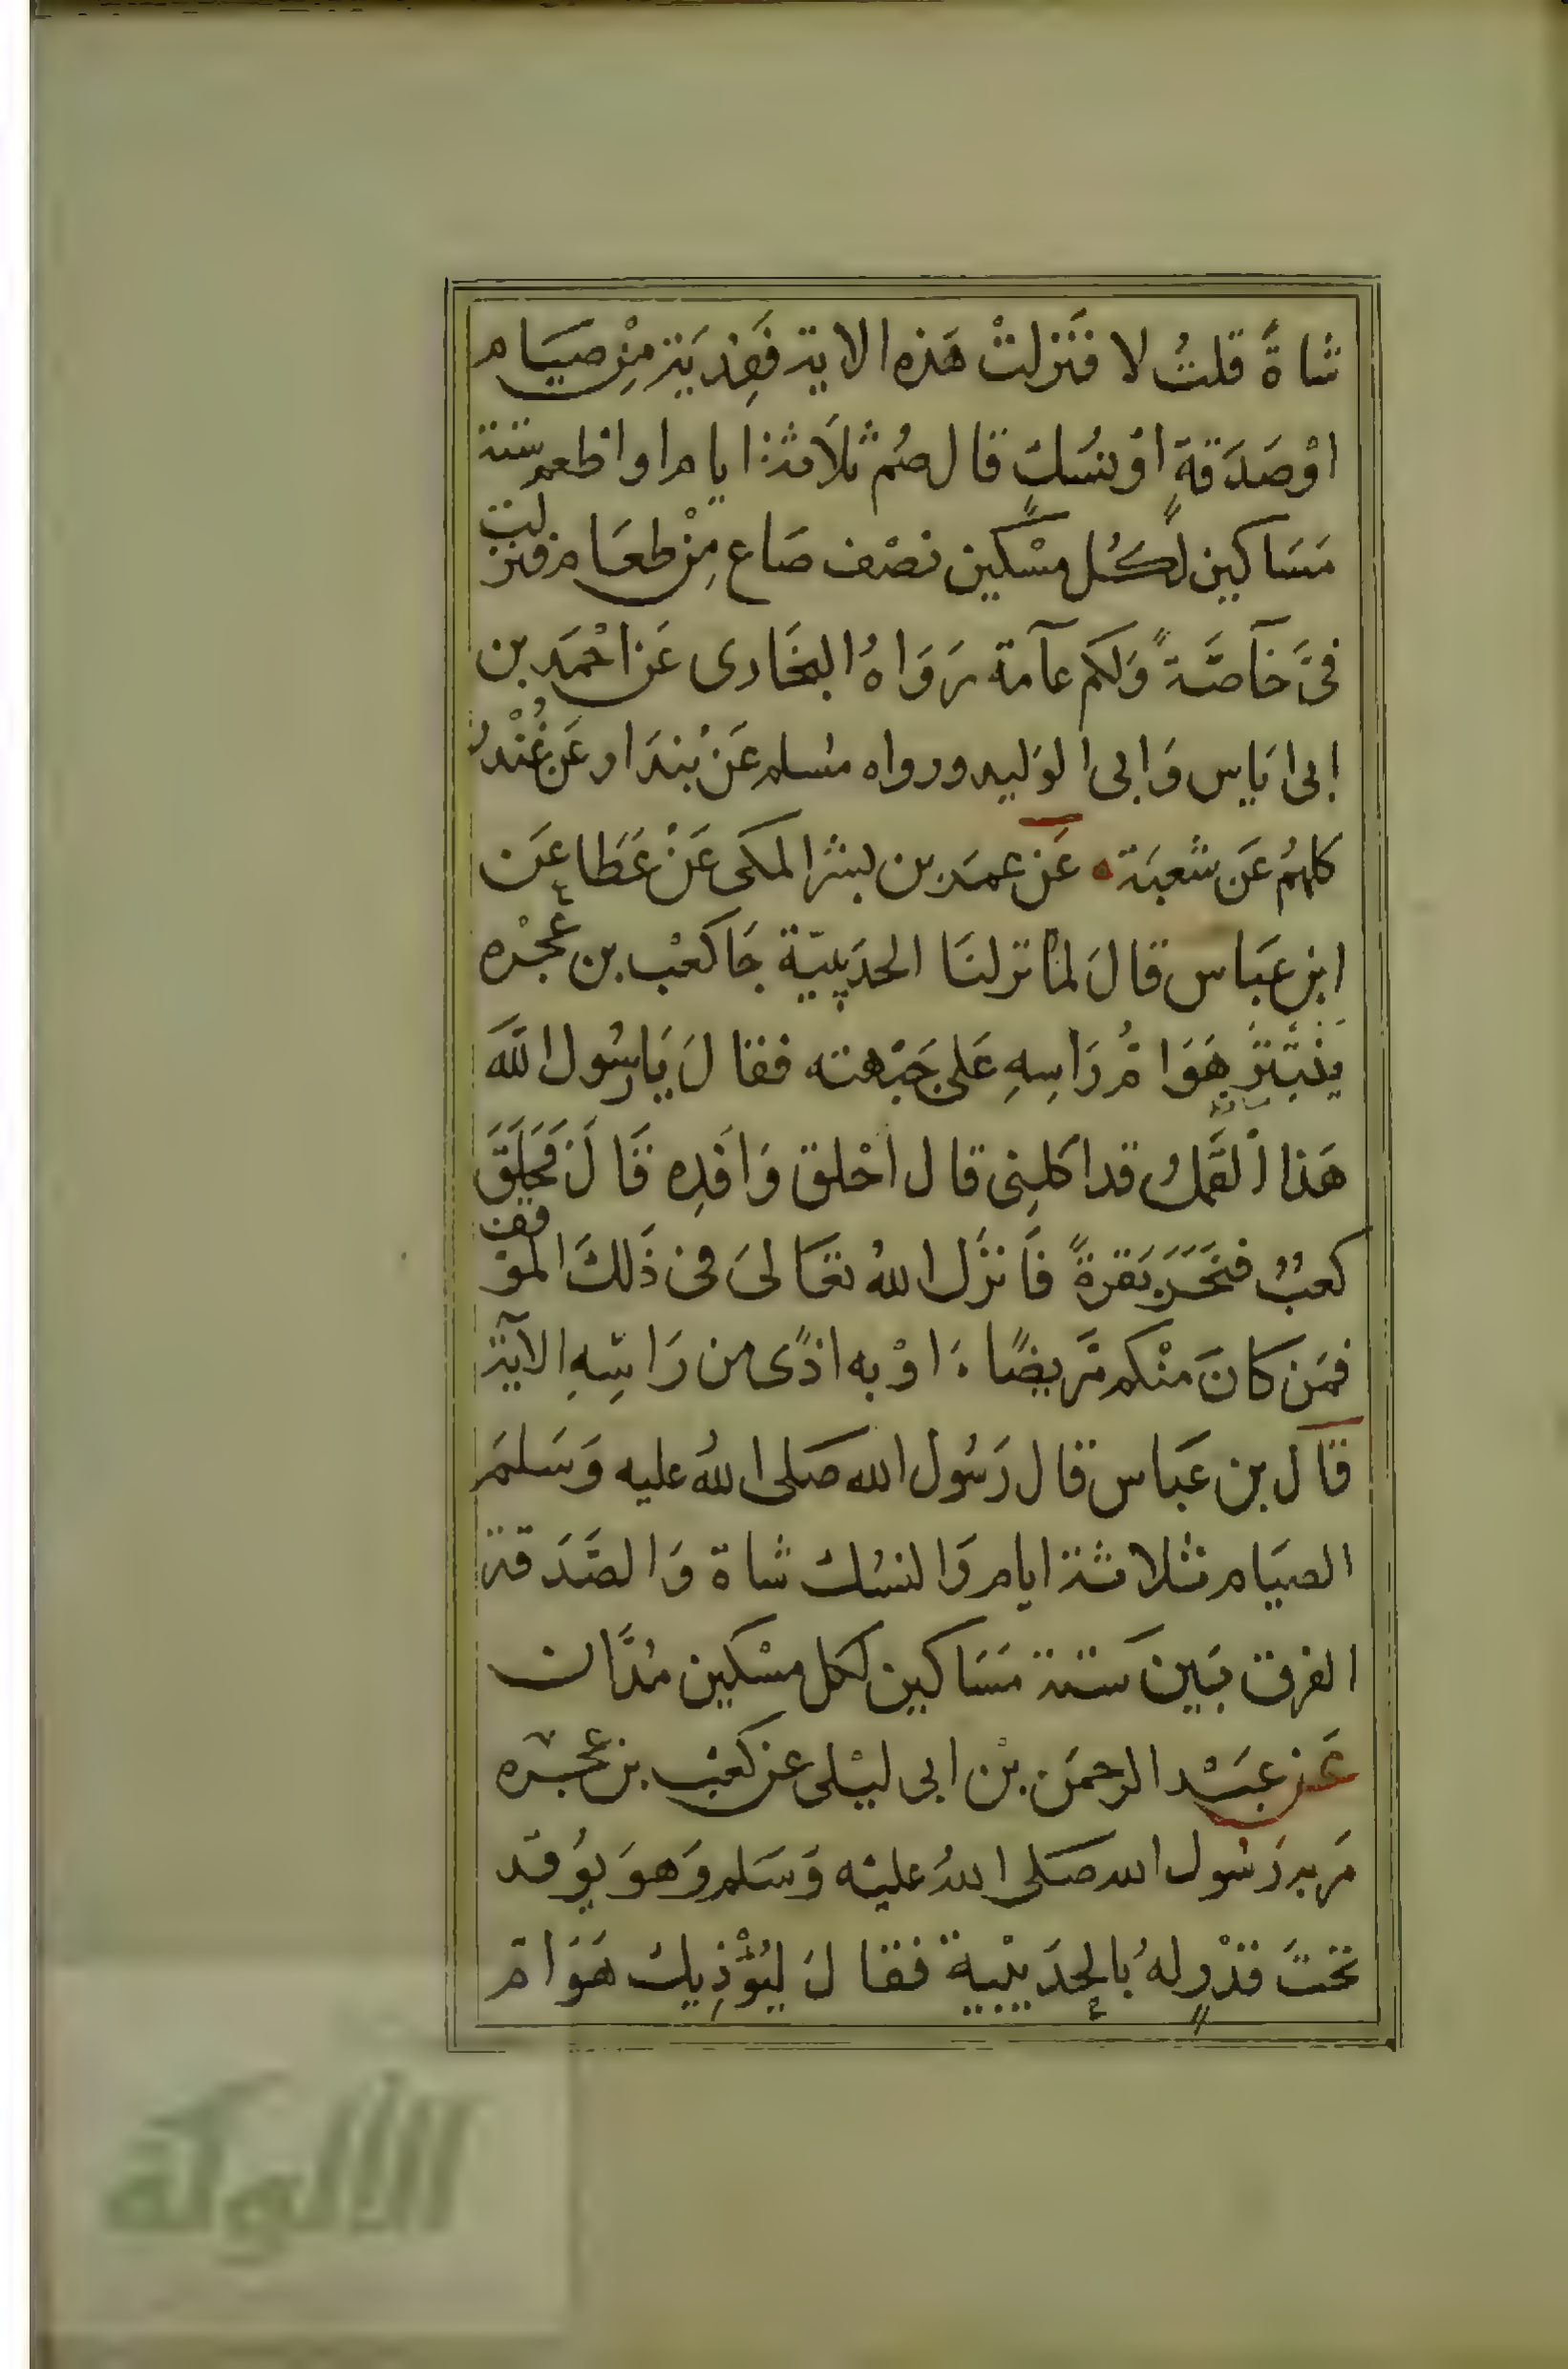 شاةً قلتُ لا فنَزلتْ هَذه الاية فَفِدْيَة مِنْ صيَام
اوْصَدَقةٍ اوْ نسُكٍ قال صُم ثلَاثة ايام او اطعم ستة
مَسَاكين لكُل مسْكين نصْف صَاع مِنْ طعَام فنزلت
فىَّ خآصَّةً وَلكم عآمة رَوَاهُ البخَارى عَن احْمَد بن
ابى ايَاس وَابى الوَليد ورواه مسُلم عَنْ بُندَار عَن غُنْدر
كلهُم عَن شعبَة ه عَن عمَر بن بشر المكى عَنْ عَطَا عَن
ابن عبَاس قالَ لما نزلنَا الحدَيبيّة جَا كعْب بن عجْره
ينْتَثِرُ هَوَامُّ رَاسِهِ عَلى جَبْهته فقالَ يَا رسُول اللَّه
هَذا القَملُ قد اكلنِى قال احْلق وَافدِه قَالَ فَحَلَقَ
كعبٌ فنَحَرَ بَقرةً فَانزَل اللهُ تعَالىَ فى ذَلكَ الموقف
فمَن كانَ منْكم مَّريضًا اوْ به اذًى من رَاسِهِ الآية
قَال بن عَباس قال رَسُول الله صَلى اللهُ عليه وَسَلمَ
الصيَام ثلاثة ايام وَالنسُك شاة وَالصَّدَقة
الفرق بَين ستة مَسَاكين لكل مسْكين مُدَّان
عَن عبَدْ الرحمَن بْن ابى ليْلى عن كعْب بن عجْره
مَر به رَسُول الله صَلى اللهُ عليْه وَسَلم وَهوَ يوُقد
تحتَ قدْرٍ لهُ بالحدَيْبية فقالَ ليُؤْذِيك هَوَامّ
الألوكة